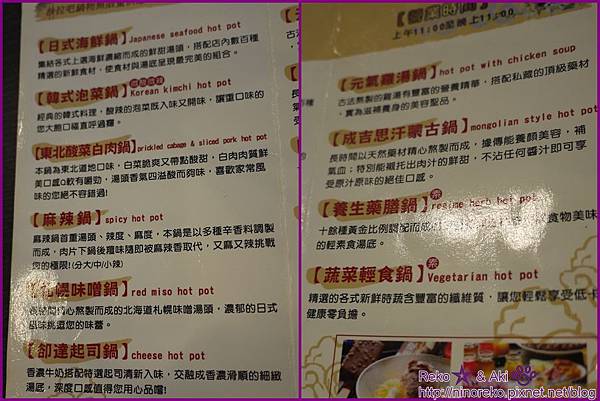 【日式海鮮鍋】Japanese seafood hot pot
集結各式上選海鮮濃縮而成的鮮甜湯頭，搭配店內數百種
精選的新鮮食材，使食材與湯底呈現最完美的組合。
【韓式泡菜鍋】Korean kimchi hot pot
經典的韓式料理，酸辣的泡菜既入味又開味，講重口味的
您大飽口福直呼過癮。
【東北酸菜白肉鍋】prickled cabage & sliced pork hot pot
本鍋為東北道地口味，白菜脆爽又帶點酸甜，白肉肉質鮮
美口感Q軟有嚼勁，湯頭香氣四溢酸而夠味，喜歡家常風
味的您絕不容錯過!
【麻辣鍋】spicy hot pot
麻辣鍋首重湯頭、辣度、麻度，本鍋是以多種辛香料調製
而成，肉片下鍋後羶味隨即被麻辣香取代，又麻又辣挑戰
您的極限!(分大/中/小辣)
【札幌味噌鍋】red miso hot pot
長時間精心熬製而成的北海道札幌味噌湯頭，濃郁的日式
風味挑逗您的味蕾。
【卻達起司鍋】cheese hot pot
香濃牛奶搭配特選起司清新入味，交融成香濃滑順的細緻
湯底，深度口感值得您用心品嚐!
【營業時間】
上午11:00至晚上11:00
【元氣雞湯鍋】hot pot with chicken soup
古法熬製的雞湯有豐富的營養精華，搭配私藏的頂級藥材
，實為滋補養身的美容聖品。
【成吉思汗蒙古鍋】mongolian style hot pot
長時間以天然藥材精心熬製而成，據傳能養顏美容，補
氣血；特別能襯托出肉汁的鮮甜，不沾任何醬汁即可享
受原汁原味的絕佳口感。
【養生藥膳鍋】素 regime herb hot pot
十餘種黃金比例調配而成的 食物美味
的輕素食湯底。
【蔬菜輕食鍋】素 Vegetarian hot pot
精選的各式新鮮時蔬含豐富的纖維質，讓您輕鬆享受低卡
健康零負擔。
Reko & Aki
http://ninoreko.pixnet.net/blog